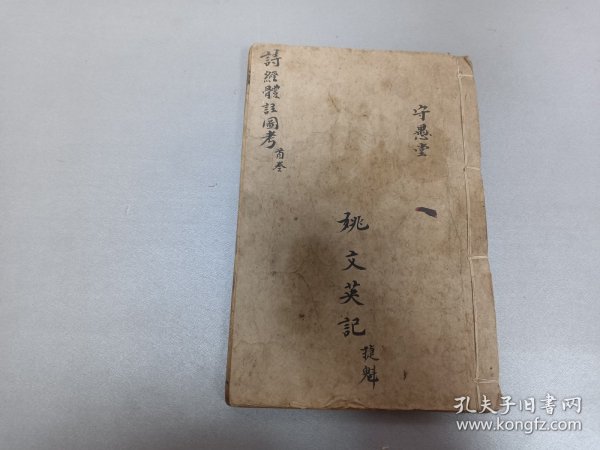 詩經體註圖考
首卷
守愚堂
一
姚文英記
捷魁
孔夫子旧书网
www.kongfz.com